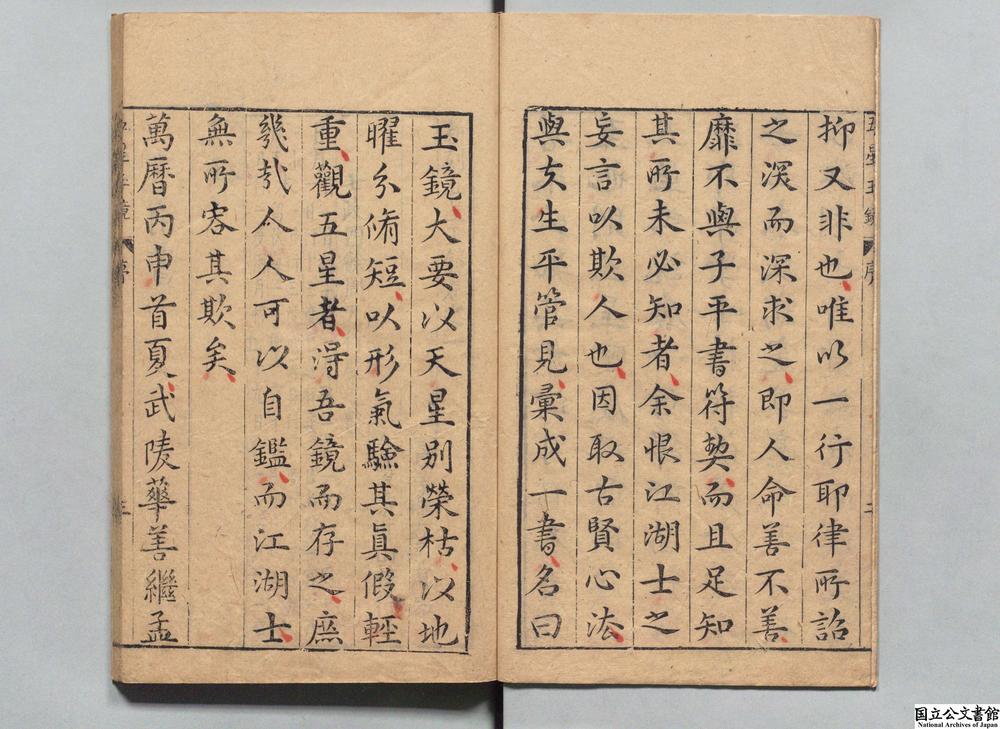 抑又非也唯以一行耶律所詣
之溪而深求之即人命善不善
靡不與子平書符契而且足知
其所未必知者余恨江湖士之
妄言以欺人也因取古賢心法
與夫生平管見彙成一書名曰
玉鏡大要以天星别榮枯以地
曜分脩短以形氣驗其真假輕
重觀五星者得吾鏡而存之庶
幾哉人人可以自鑑而江湖士
無所容其欺矣
萬曆丙申首夏武陵華善繼孟
国立公文書館
National Archives of Japan